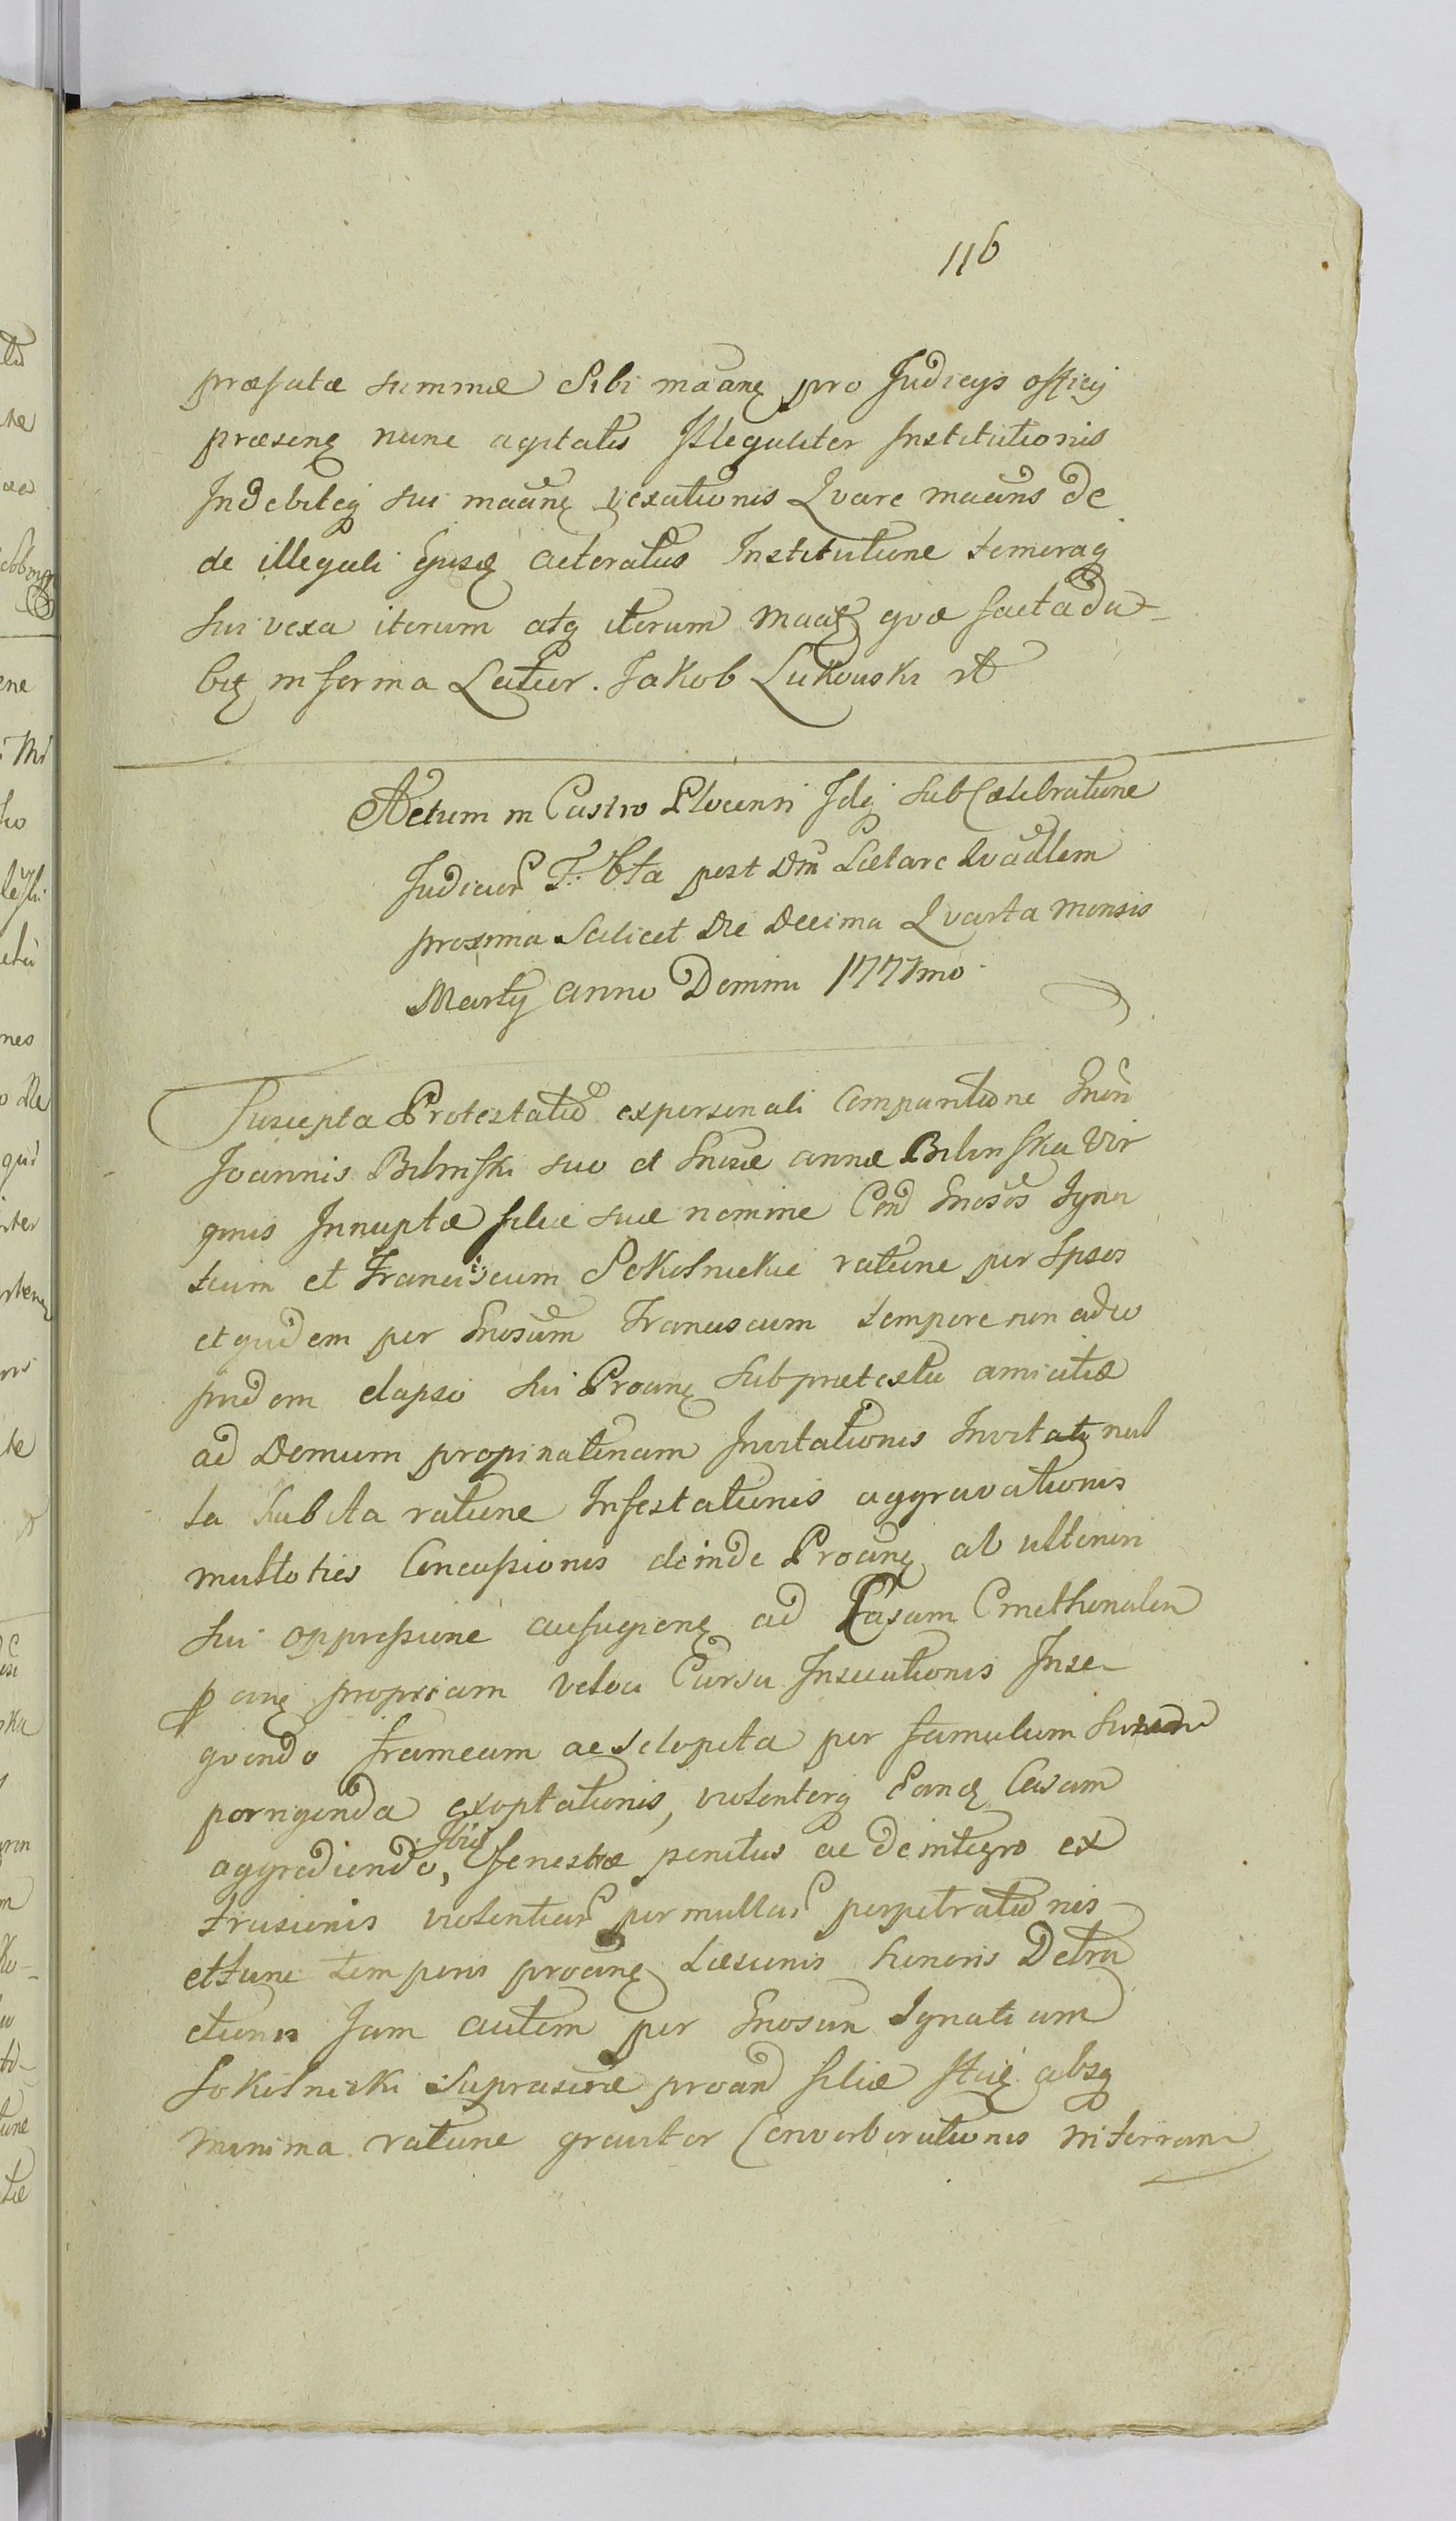 116
præfatæ summæ Sibi maanę pro Judicijs officij
præsenę nunc agitatis Illegaliter Institutionis
Indebiteq sui maanę vexationis Qvare maans de
de illegali Ejusq acteratus Institutione temeraq
sui vexa iterum atq iterum qvæ facta du-
bię in forma Latior. Jakob Lukowski
Actum in Castro Plocensi Idq sub Cælebratione
Judicior F. 6ta post Dm Lætare Qvadlem
proxima Scilicet Die Decima Qvarta Mensis
Martij anno Domini 1777mo
Suscepta Protestatio expersonali Comparitione Gnosi
Joannis Bilinski suo et Gnosæ annæ Bilinska Vir
ginis Innuptæ filiæ suæ nomine Con Gnosos Igna
tium et Franciscum Sokolnickie ratione per Ipsos
et qvidem per Gnosum Franciscum tempore non adeo
pridem elapso sui Proanę sub prætextu amicitiæ
ad Domum propinatoriam Invitationis Invitatę nul
la habita ratione Infestationis aggravationis
multoties Concussionis deinde Proanę ab ulteriori
sui oppressione aufugienę ad Casam Cmethonalem
panę propriam veloci Cursu Insecutionis Inse-
qvendo frameam ac sclopeta per famulum
porrigenda exoptationis, violenterq Eandę Casam
aggrediendo, Ibidę fenestræ penitus ac de integro ex
trusionis violentiar permultar perpetrationis
et tunc temporis proanę Læsionis honoris Detra
ctionis Jam autem per Gnosum Ignatium
Sokolnicki proand filiæ absq
minima ratione graviter Converberationis in terram